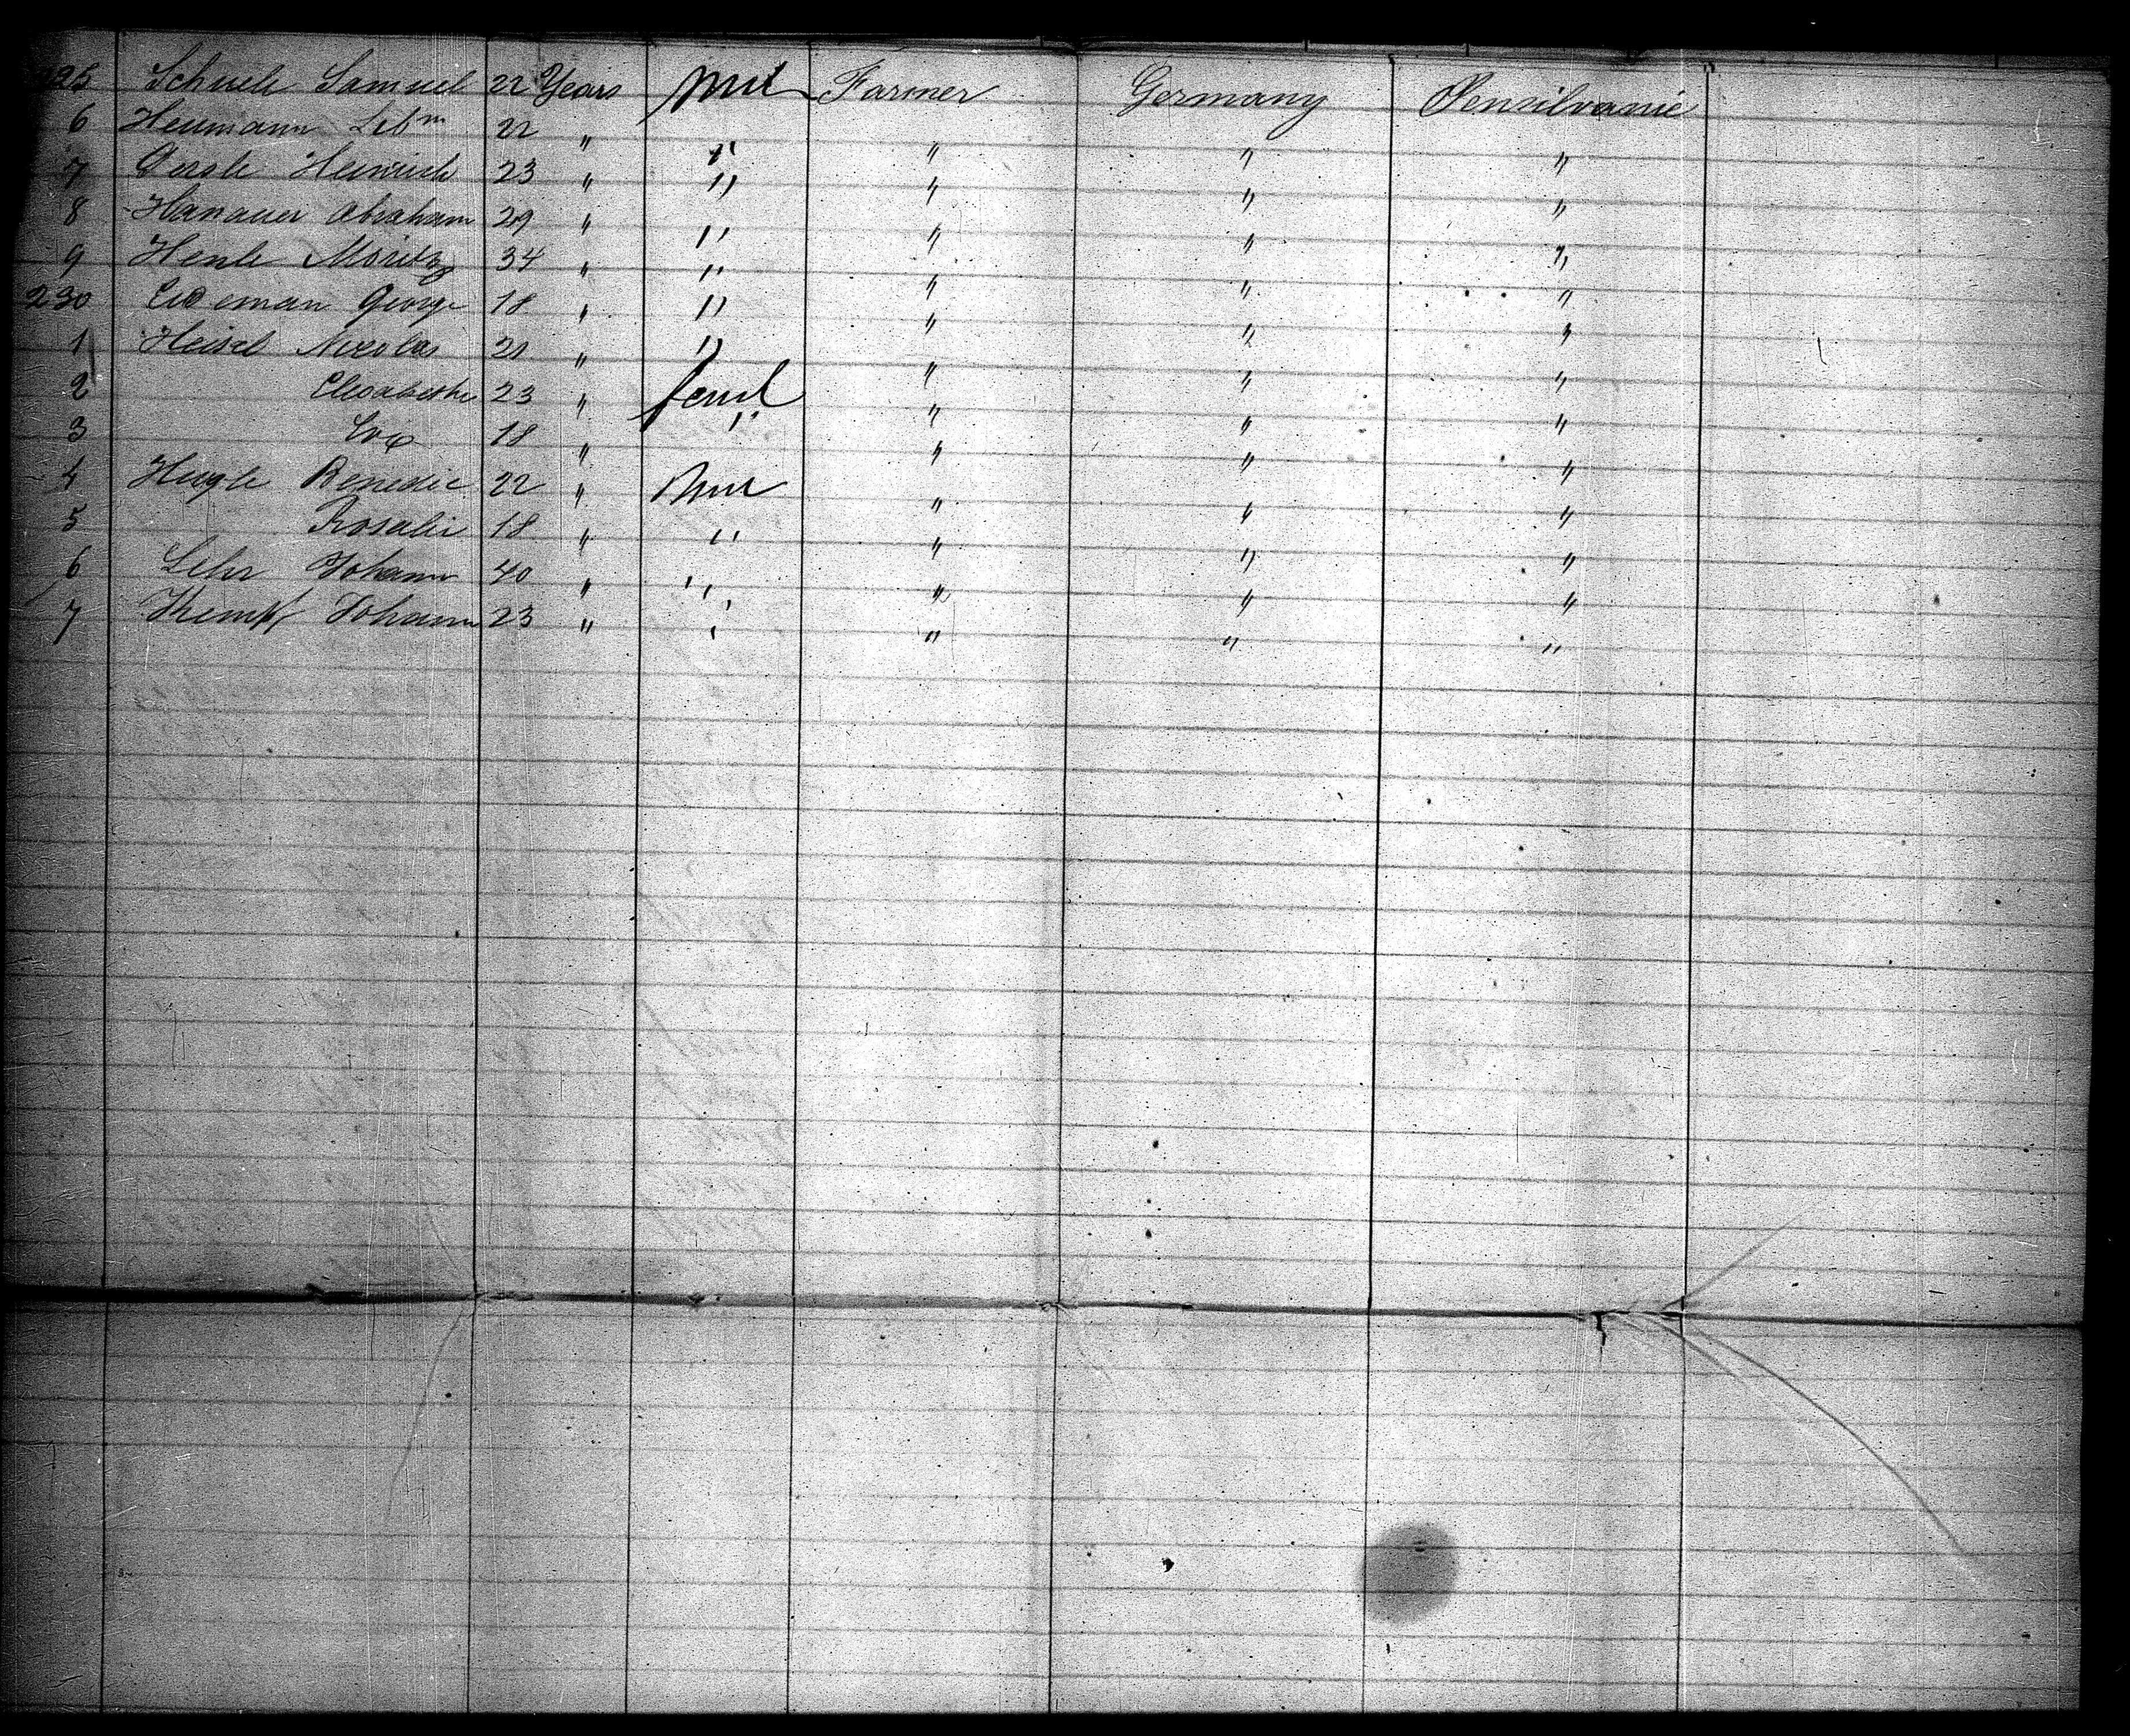 225 Schuele Samuel 22 Years ml Farmer Germany Pensilvanie
6 Heumann Leb^m 22 " " " " "
7 Heinrich 23 " " " " "
8 Hanauer Abraham 29 " " " " "
9 Henle Moritz 34 " " " " "
230 George 18 " " " " "
1 Heisel Nicolas 21 " " " " "
2 Elisabethe 23 " feml " " "
3 Eva 18 " " " " "
4 Hugle Benedic 22 " ml " " "
5 Rosalie 18 " " " " "
6 Lehr Johann 40 " " " " "
7 Kempf Johann 23 " " " " "